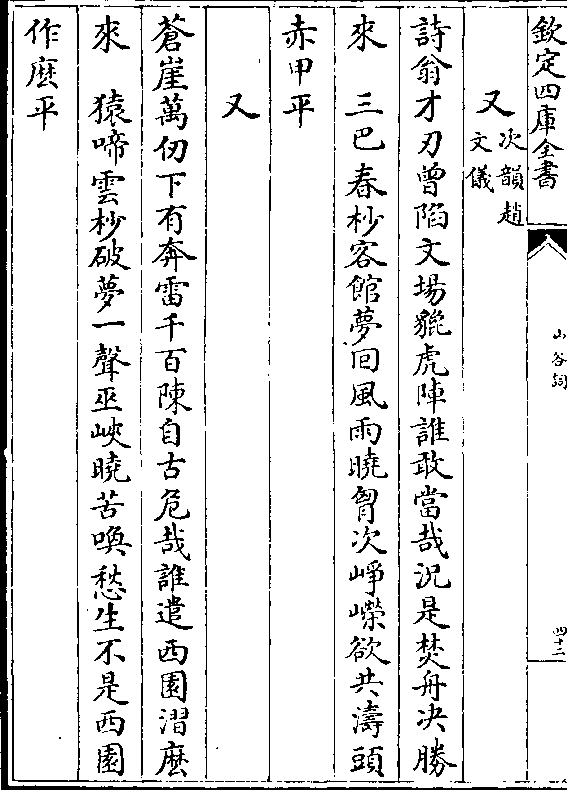 欽定四庫全書
山谷詞
四十三
又次韻趙文儀
詩翁才刃曾陷文場貔虎陣誰敢當哉況是焚舟决勝
來　三巴春杪客館夢回風雨曉胷次崢嶸欲共濤頭
赤甲平
又
蒼崖萬仞下有奔雷千百陳自古危哉誰遣西園漝麽
來　猿啼雲杪破夢一聲巫峽曉苦喚愁生不是西園
作麽平